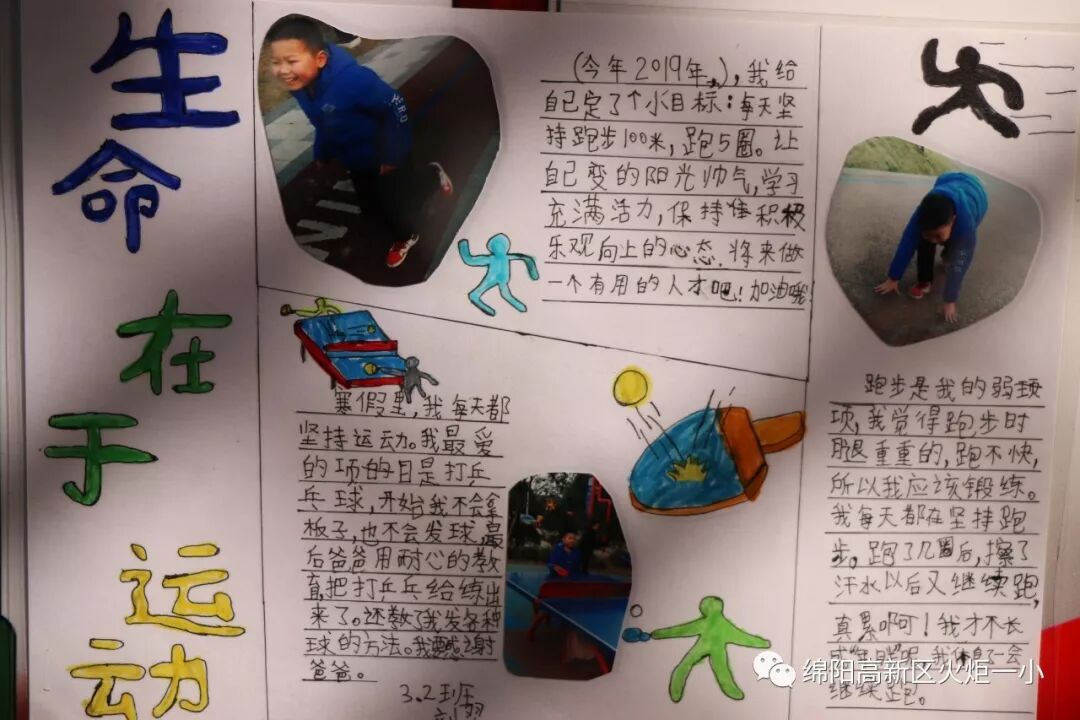 生命在于运动
(今年2019年,),我给
自己定了个小目标:每天坚
持跑步100米,跑5圈。让
自己变的阳光帅气,学习
充满活力,保持住积极
乐观向上的心态.将来做
一个有用的人才吧!加油哦!
寒假里,我每天都
坚持运动。我最爱
的项的日是打乒
乓球,开始我不会拿
板子,也不会发球,最
后爸爸用耐心的教
育把打乒乓给练出
来了。还教了我发各种
球的方法。我要感谢
爸爸。
3.2班
跑步是我的弱项
项,我觉得跑步时
腿重重的,跑不快,
所以我应该锻练。
我每天都在坚持跑
步。跑了几圈后,擦了
汗水以后又继续跑,
真累啊可!我才不长
我休息了一会
继续跑。
HERO
绵阳高新区火炬一小